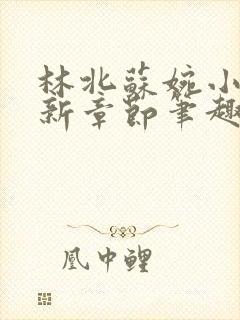 林北蘇婉小
新章節筆趣
凰中鯉